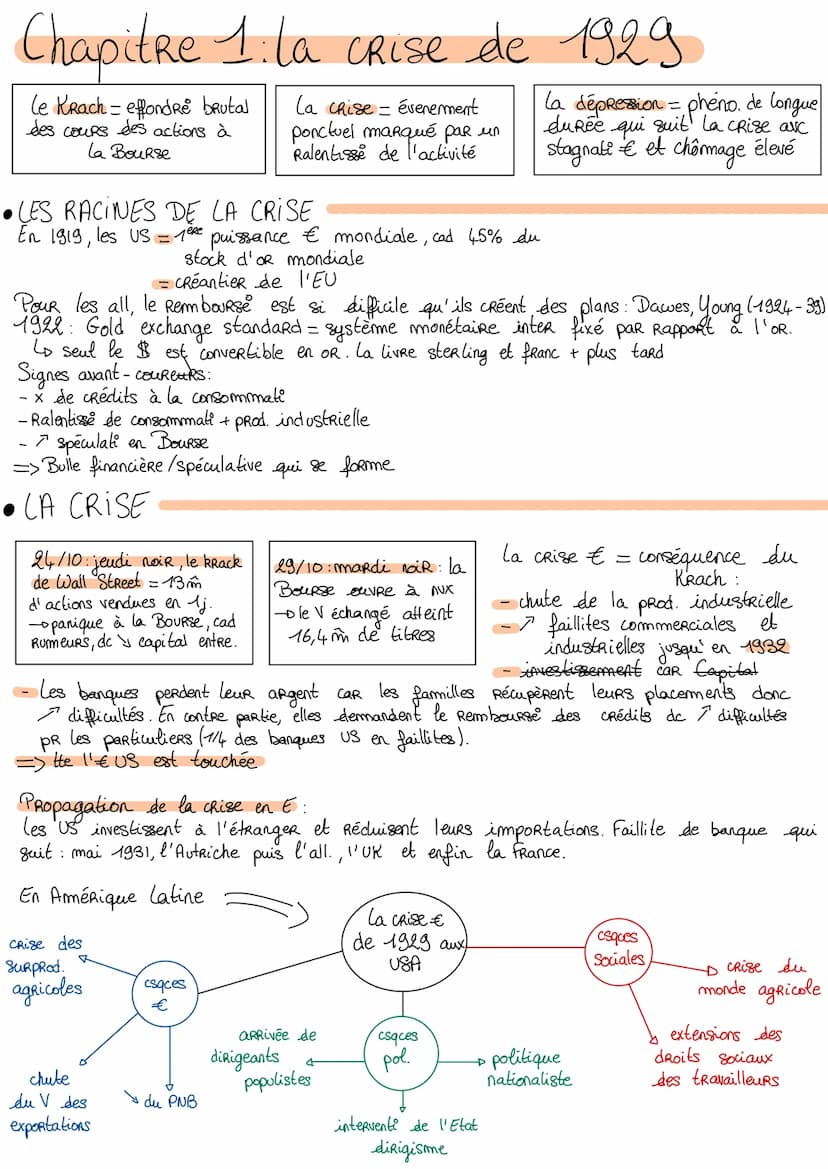 Chapitre 1: la crise de 1929
Le Krach = effondré brutal
des cours des actions à
la Bourse
La crise = évenement
ponctuel marqué par un
Ralentissé de l'activité
La dépression = phéno. de longue
durée qui suit la crise avc
stagnatº € et chômage élevé
• LES RACINES DE LA CRISE
En 1919, les US = 1ère puissance € mondiale, cad 45% du
stock d'or mondiale
= créantier de l'EU
Pour les all, le remboursé est si difficile qu'ils créent des plans : Dawes, Young (1924-39)
1922 : Gold exchange standard = système monétaire inter fixé par rapport à l'or.
↳ seul le $ est convertible en or. La livre sterling et franc + plus tard
Signes avant-coureurs:
- x de crédits à la consommatº
- Ralentissé de consommatº + prod. industrielle
- ↗ spéculatº en Bourse
=> Bulle financière/spéculative qui se forme
• LA CRISE
24/10 : jeudi noir, le krack
de Wall Street = 13m̂
d'actions vendues en 1j.
→ panique à la Bourse, cad
rumeurs, dc ↘ capital entre.
29/10 : mardi noir : la
Bourse ouvre à nx
→ le V échangé atteint
16,4m̂ de titres
La crise € = conséquence du
Krach :
- chute de la prod. industrielle
- ↗ faillites commerciales et
industrielles jusqu'en 1932
- investissement car Capital
- Les banques perdent leur argent car les familles récupèrent leurs placements donc
↗ difficultés. En contre partie, elles demandent le remboursé des crédits dc ↗ difficultés
pr les particuliers (1/4 des banques US en faillites).
=> tte l'€ US est touchée
Propagation de la crise en E :
Les US investissent à l'étranger et réduisent leurs importations. Faillite de banque qui
suit : mai 1931, l'Autriche puis l'all., l'UK et enfin la France.
En Amérique Latine
La crise €
de 1929 aux
USA
csqces
€
crise des
surprod.
agricoles
chute
du V des
exportations
↘ du PNB
csqces
pol.
arrivée de
dirigeants
populistes
politique
nationaliste
interventº de l'Etat
dirigisme
csqces
sociales
crise du
monde agricole
extensions des
droits sociaux
des travailleurs